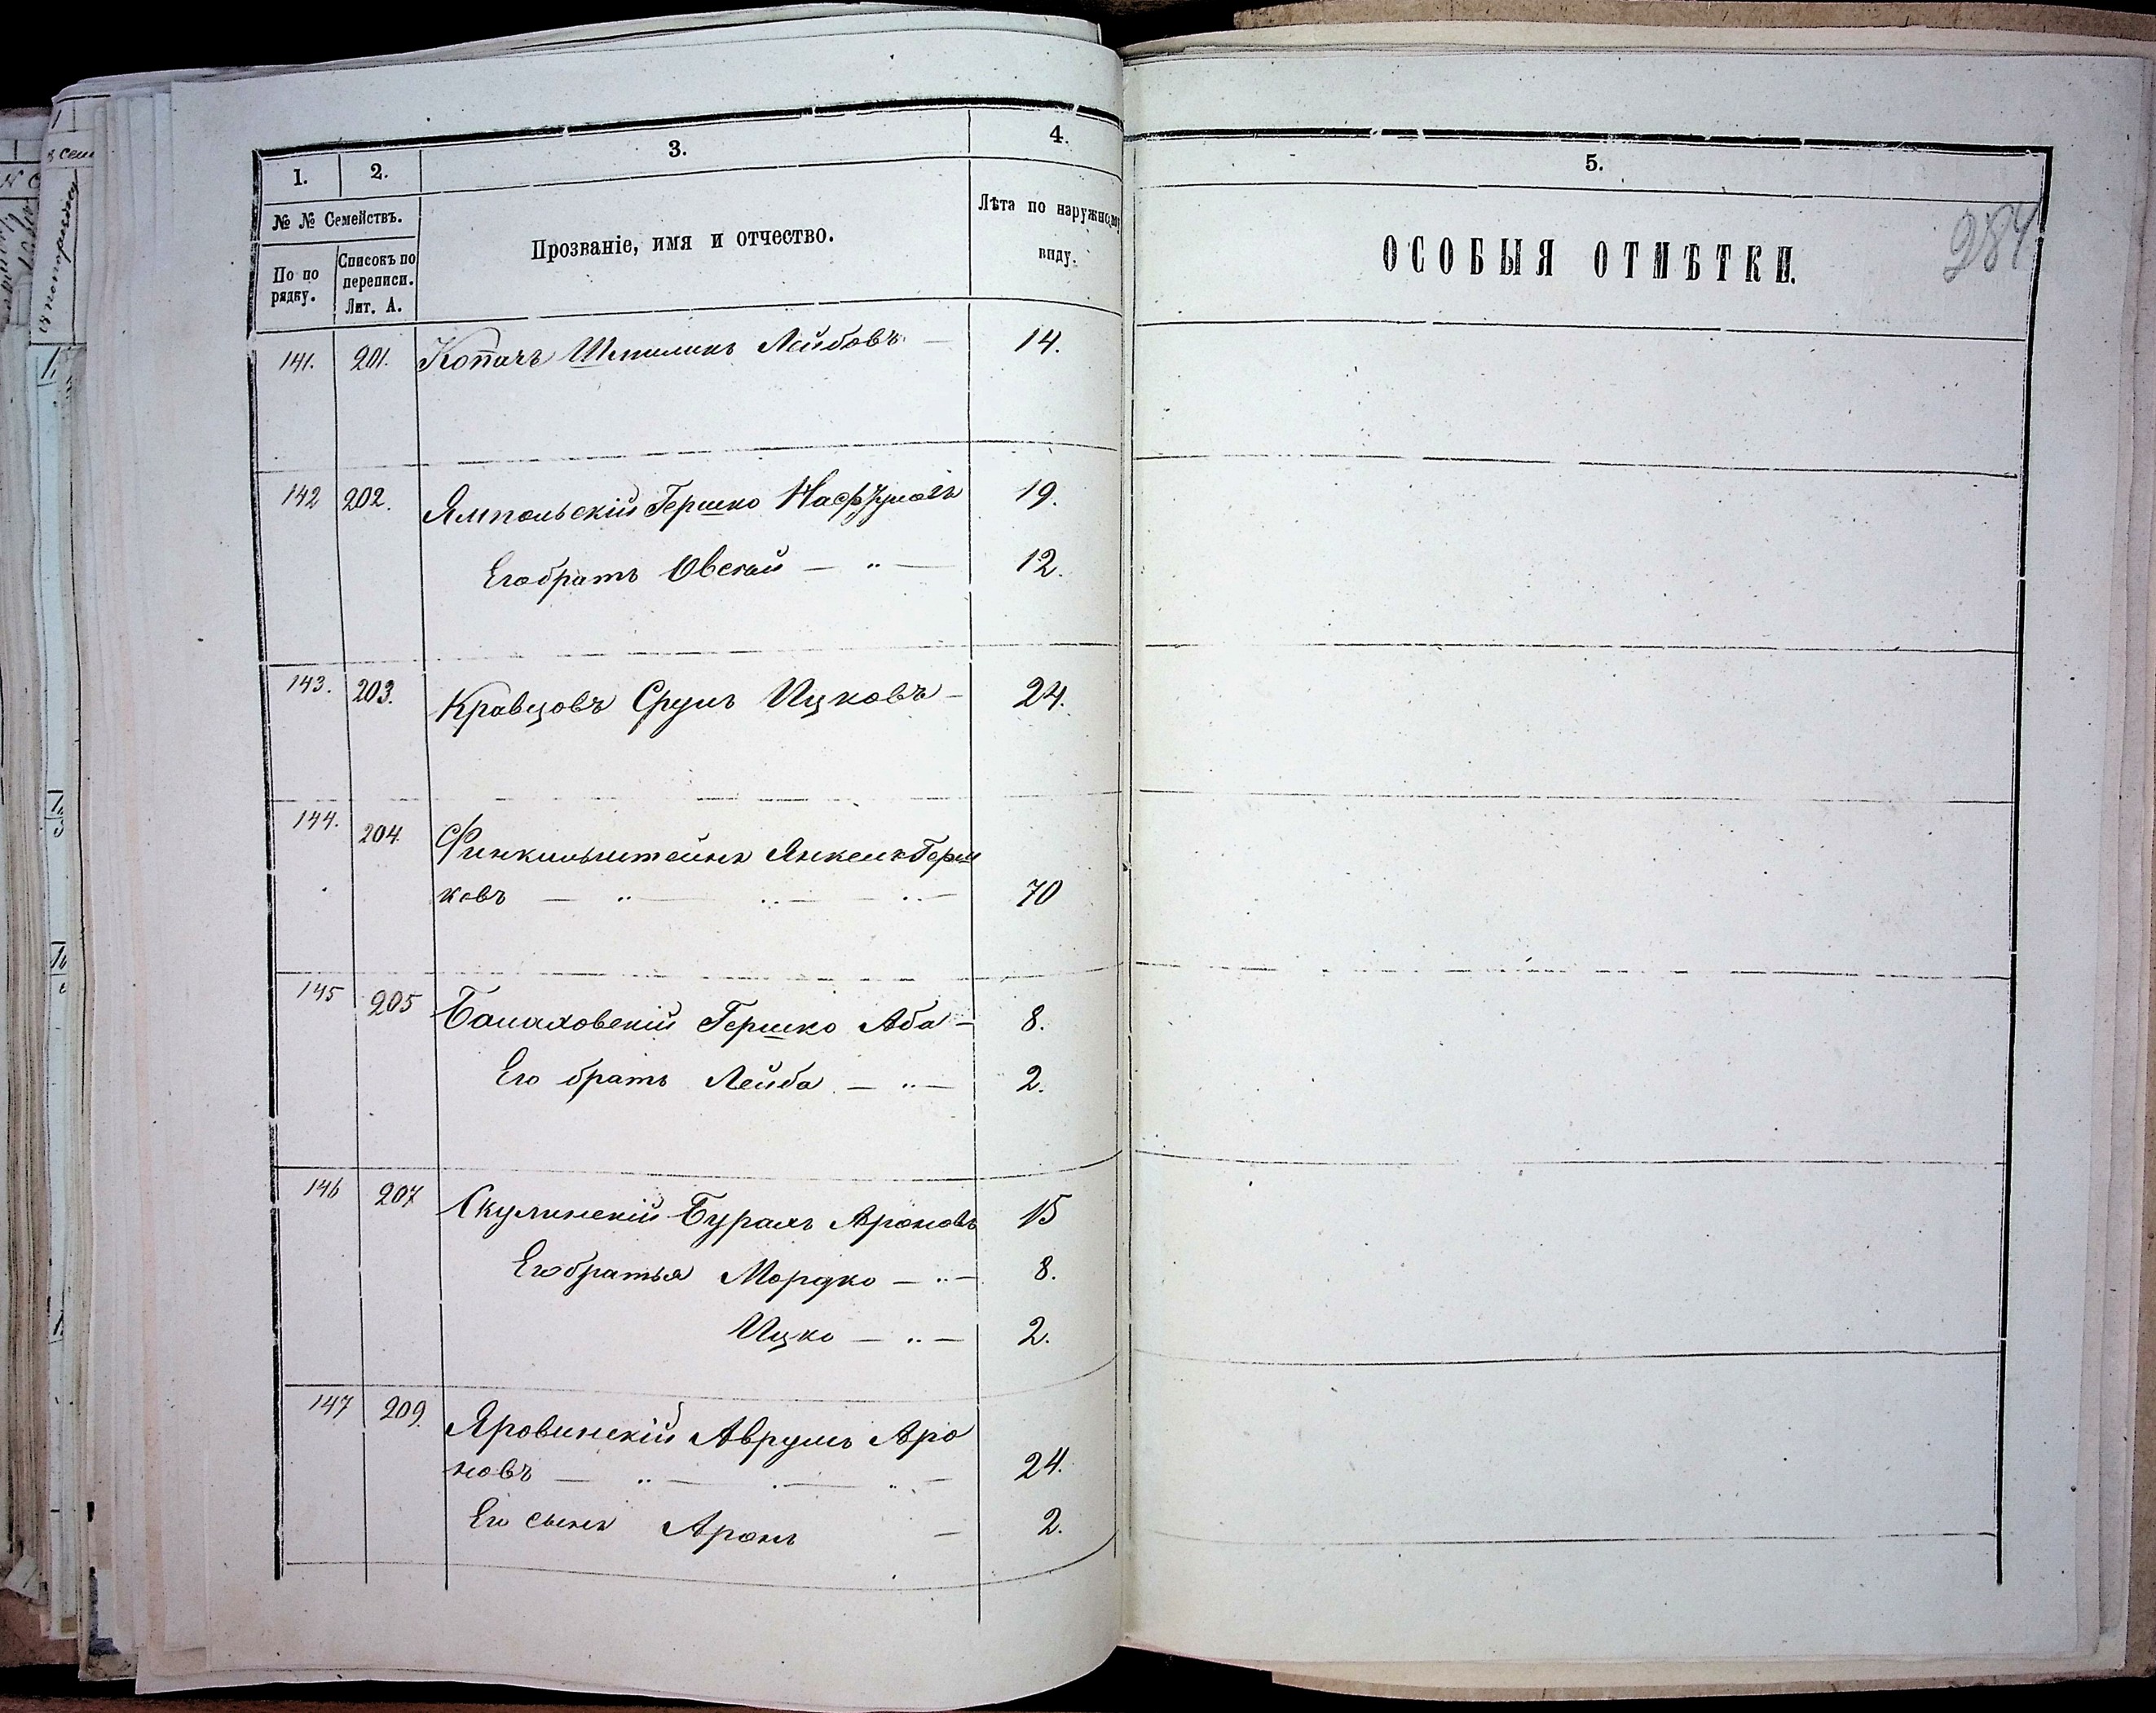 1.
2.
3.
4.
5.
№ № Семействъ.
По по
рядку.
Списокъ по
переписи.
Лит. А.
Прозваніе, имя и отчество.
Лѣта по наружному
виду.
ОСОБЫЯ ОТМѢТКИ.
284
141. 201. Копачъ Шмиликъ Лейбовъ — 14.
142 202. Ямпольскій Гершко 19.
Его братъ Овсей — " — 12.
143. 203. Кравцовъ Срулъ Ицковъ — 24.
144. 204 Финкильштейнъ Янкель Герш
ковъ — " — " — " — 70
145 205 Гершко Аба — 8.
Его братъ Лейба — " — 2.
146 207 Скулинскій Ароновъ 15
Его братья Мордко — " — 8.
Ицко — " — 2.
147 209. Яровинскій Аврумъ Аро
новъ — " — " — " — 24.
Его сынъ Аронъ — 2.